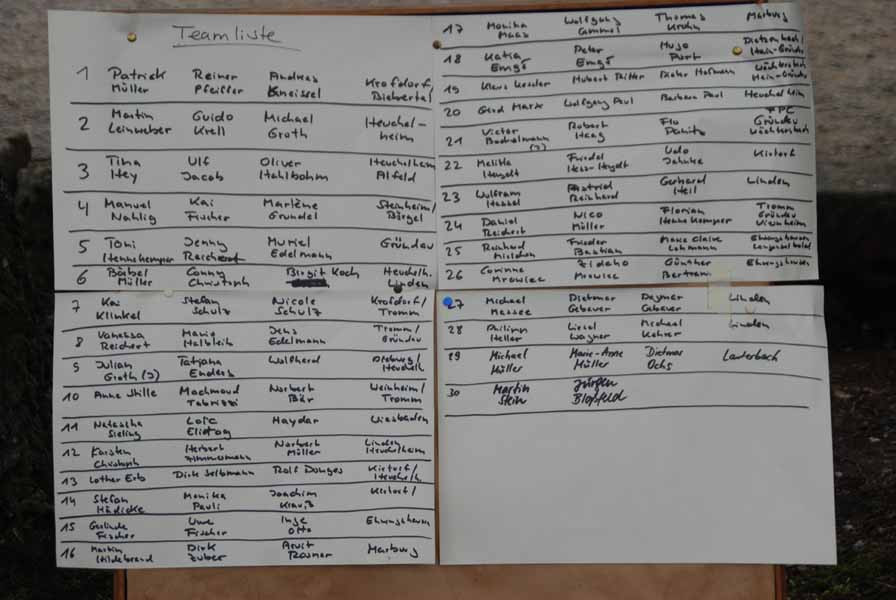 Teamliste
1 Patrick Reiner Andreas Krofdorf/
Müller Pfeiffer Kneissel Biebertal
2 Martin Guido Michael Heuchel-
Leinweber Krell Groth heim
3 Tina Ulf Oliver Heuchelheim
Hey Jacob Stahlbohm Alfeld
4 Manuel Kai Marlène Steinheim/
Nahlig Fischer Grundel Bürgel
5 Toni Jenny Muriel Gründau
Hennekemper Reichert Edelmann
6 Bärbel Conny Birgit Koch Heuchelh.
Müller Christoph Linden
7 Kai Stefan Nicole Krofdorf/
Klinkel Schulz Schulz Tromm
8 Vanessa Mario Jens Tromm/
Reichert Helbleib Edelmann Gründau
9 Julian Tatjana Wolfherd
Groth (J) Enders Heuchelh
10 Anne Stille Machmoud Norbert Weinheim/
Tabrizzi Bär Tromm
11 Natascha Loïc Haydar Wiesbaden
Sieling
12 Karsten Herbert Norbert Linden
Christoph Zimmermann Müller Heuchelheim
13 Lothar Erb Dirk Selbmann Rolf Donges Kirtorf/
Heuchelh
14 Stefan Monika Joachim Kirtorf/
Hädicke Pauli Krauß
15 Gerlinde Uwe Inge Ehringshausen
Fischer Fischer Otto
16 Martin Dirk Arvit Marburg
Hildebrand Zuber
17 Monika Wolfgang Thomas Marburg
Maas Gimmel Krohn
18 Katja Peter Hugo Dietzenbach/
Emgs Emgs Port Hain-Gründau
19 Klaus Kessler Hubert Ritter Dieter Hofmann Wächtersbach
Hain-Gründau
20 Gerd Marx Wolfgang Paul Barbara Paul Heuchelheim
21 Victor Robert Flo FPC
Bechelmann Haag Gründau
(J) Wächtersbach
22 Melitta Friedel Udo Kirtorf
Heydt Hess-Heydt Jahnke
23 Wolfram Astrid Gerhard Linden
Hessel Reinhard Heil
24 Daniel Nico Florian Tromm
Reichert Müller Hennekemper Gründau
Viernheim
25 Reinhard Frieder Marie Claire Ehringshausen
Bastian Lehmann
26 Corinna Zidaho Günther Ehringshausen
Mrowiec Mrowiec Bertram
27 Michael Dietmar Dagmar Linden
Massee Gebauer Gebauer
28 Philipp Liesel Michael Linden
Heller Wagner Kehrer
29 Michael Marie-Anne Dietmar Lauterbach
Müller Müller Ochs
30 Martin Jürgen
Stein Blopfeld